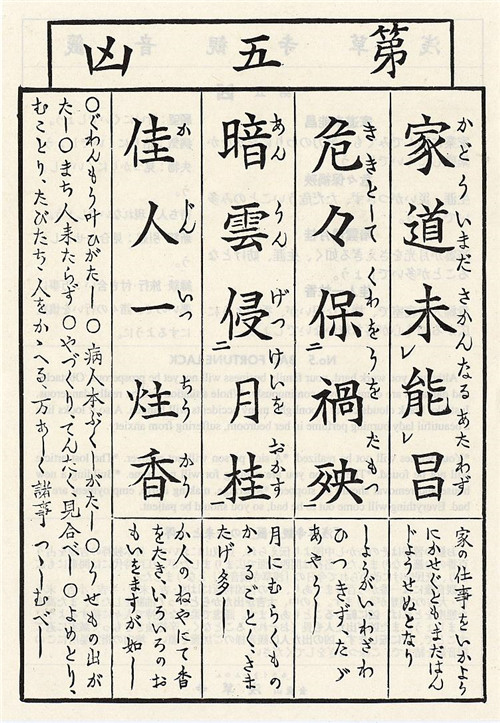 第五凶
かどういまださかんなるあたわず
家道未レ能レ昌
家の仕事をいかよう
にかせぐともまだはん
じようせぬとなり
ききとしてくわをうをたもつ
危々保二禍殃
しようがい、わざわ
ひつきず、たゞ
あやうし
あんうんげつけいをおかす
暗雲侵二月桂
月にむらくもの
かゝるごとく、さま
たげ多し
かじんいつちうかう
佳人一炷香
か人のねやにて香
をたき、いろいろのお
もいをますが如し
○ぐわんもう叶ひがたし○病人本ぷくしがたし○うせもの出が
たし○まち人来たらず○やづくり、てんたく、見合べし○よめとり、
むことり、たびたち、人をかゝへる万あし 諸事つゝしむべし